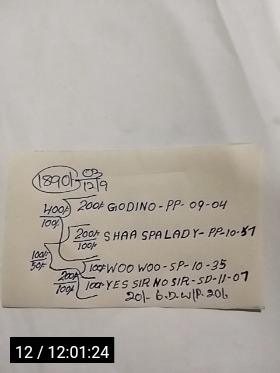 1890/-
12/9
400/- 200/- GODINO-PP-09-04
100/-
200/- SHAA SPALADY-PP-10-51
100/-
100/- 100/- WOO WOO-SP-10-35
50/-
200/- 100/- YES SIR NO SIR-SD-11-07
100/- 20/- 6.D.W/P-20/-
12 / 12:01:24